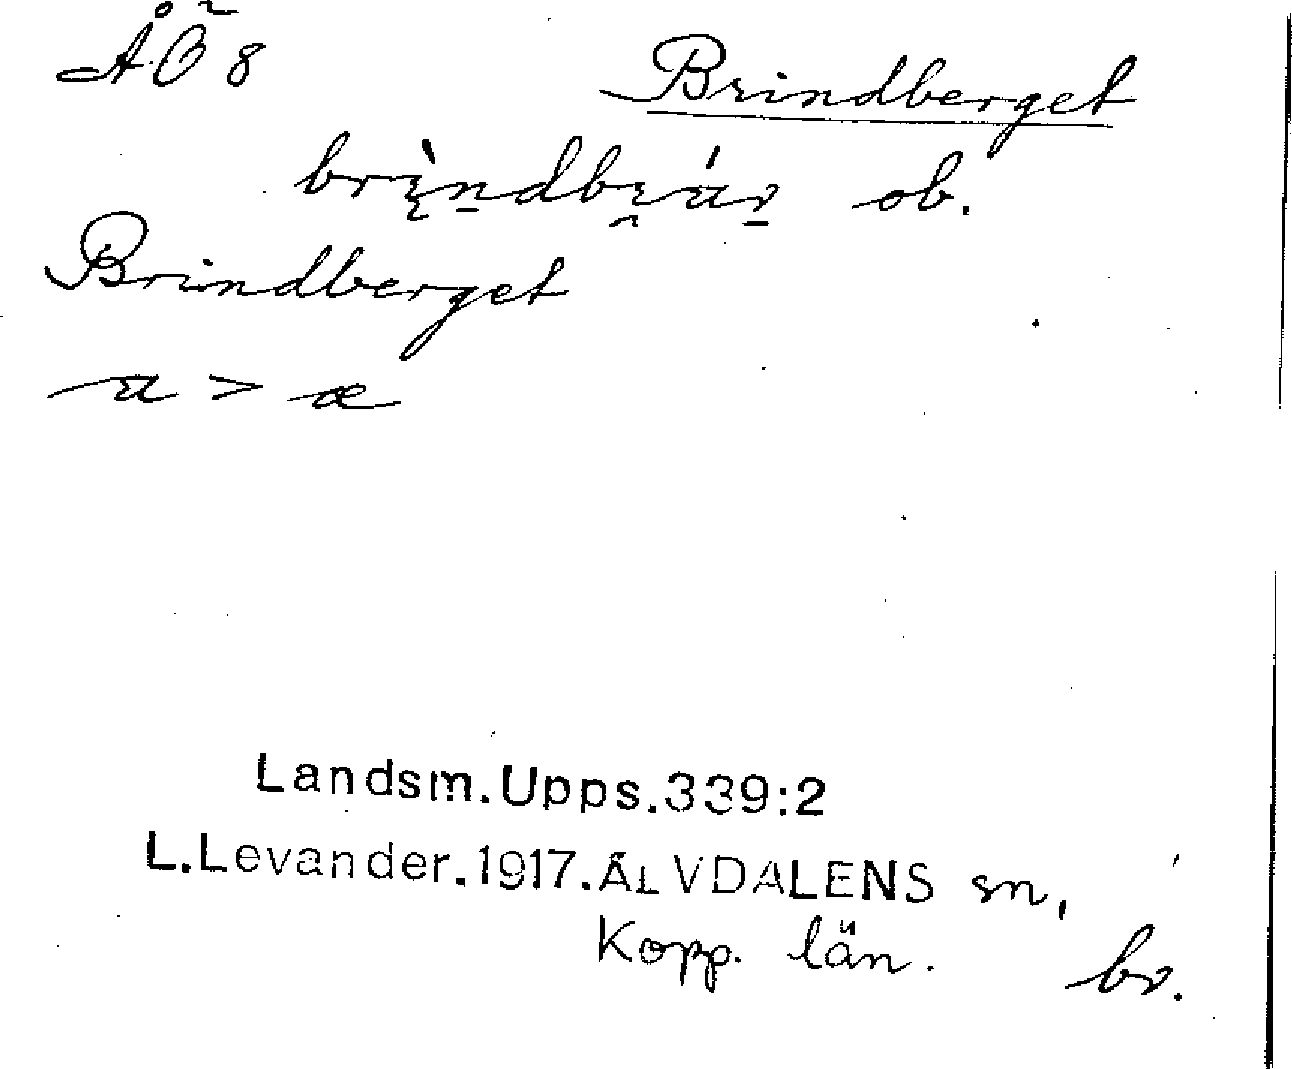 ÅÖ 8
Brindberget
ob.
Brindberget
a > æ
Landsm.Upps.339:2
L.Levander.1917.ÄLVDALENS sn,
Kopp. län.
br.